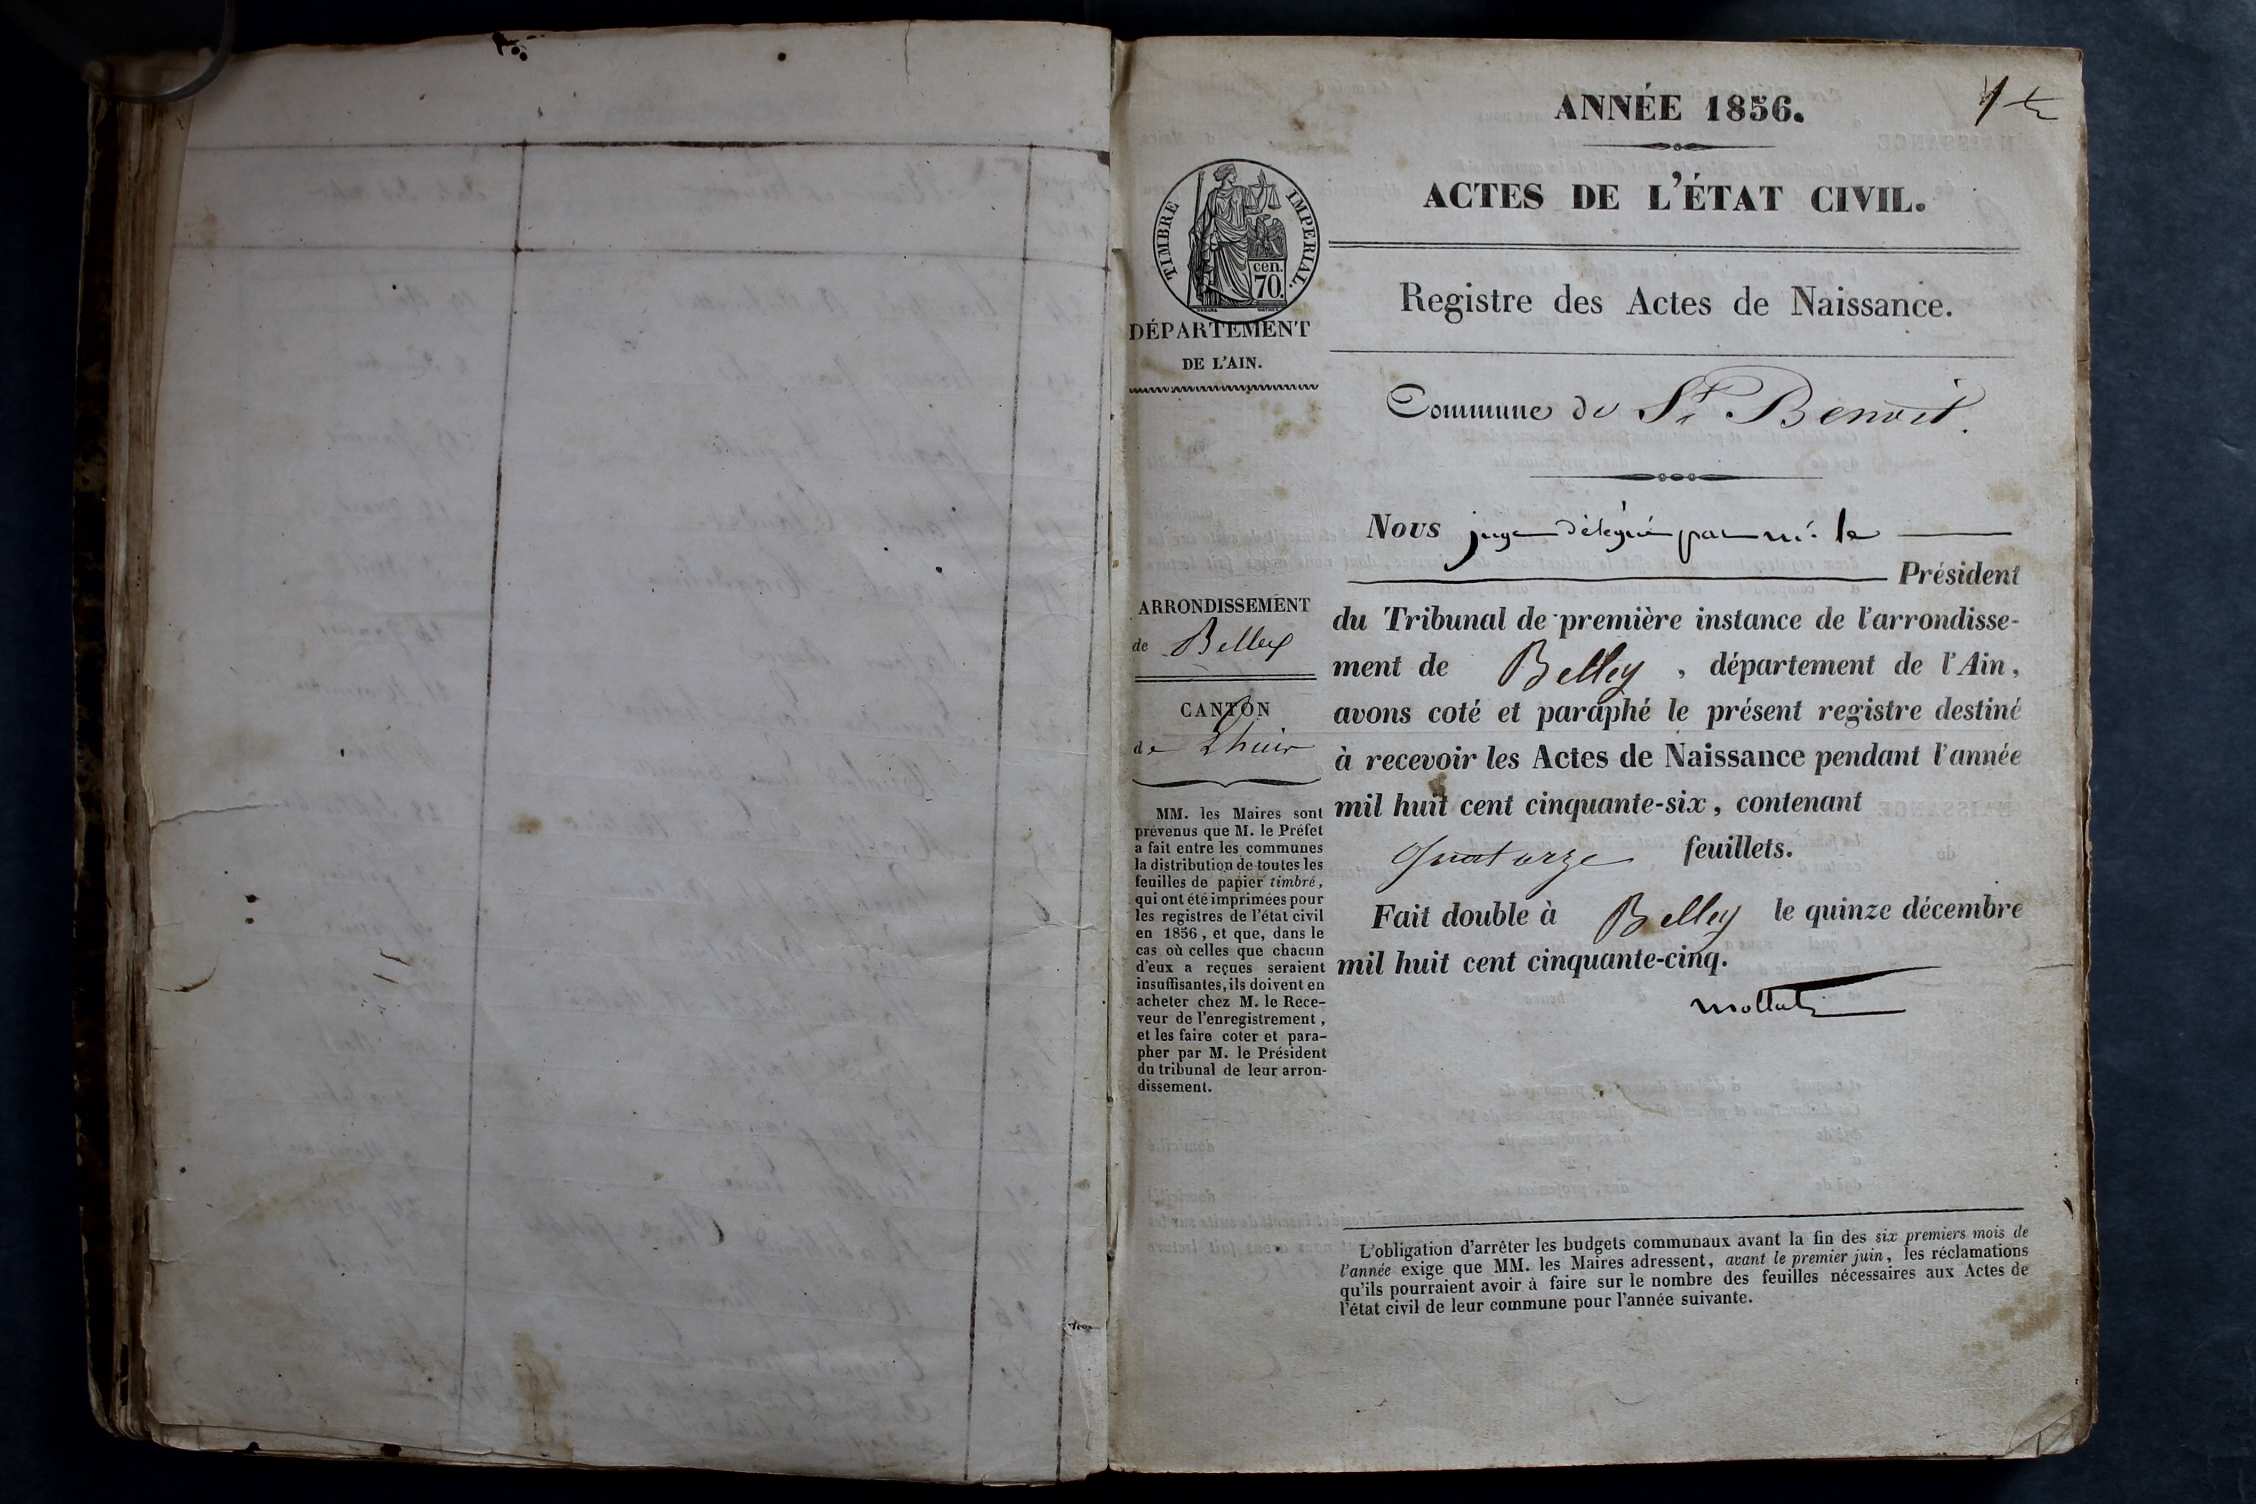 ANNÉE 1856.
ACTES DE L'ÉTAT CIVIL.
TIMBRE IMPERIAL.
cen.
70.
DÉPARTEMENT
DE L'AIN.
Registre des Actes de Naissance.
Commune de St. Benoit.
Nous juge délégué par m. le
Président
du Tribunal de première instance de l'arrondisse-
ment de Belley, département de l'Ain,
avons coté et paraphé le présent registre destiné
à recevoir les Actes de Naissance pendant l'année
mil huit cent cinquante-six, contenant
quatorze feuillets.
Fait double à Belley le quinze décembre
mil huit cent cinquante-cinq.
ARRONDISSEMENT
de Belley
CANTON
de Lhuis
MM. les Maires sont
prévenus que M. le Préfet
a fait entre les communes
la distribution de toutes les
feuilles de papier timbré,
qui ont été imprimées pour
les registres de l'état civil
en 1856, et que, dans le
cas où celles que chacun
d'eux a reçues seraient
insuffisantes, ils doivent en
acheter chez M. le Rece-
veur de l'enregistrement,
et les faire coter et para-
pher par M. le Président
du tribunal de leur arron-
dissement.
L'obligation d'arrêter les budgets communaux avant la fin des six premiers mois de
l'année exige que MM. les Maires adressent, avant le premier juin, les réclamations
qu'ils pourraient avoir à faire sur le nombre des feuilles nécessaires aux Actes de
l'état civil de leur commune pour l'année suivante.